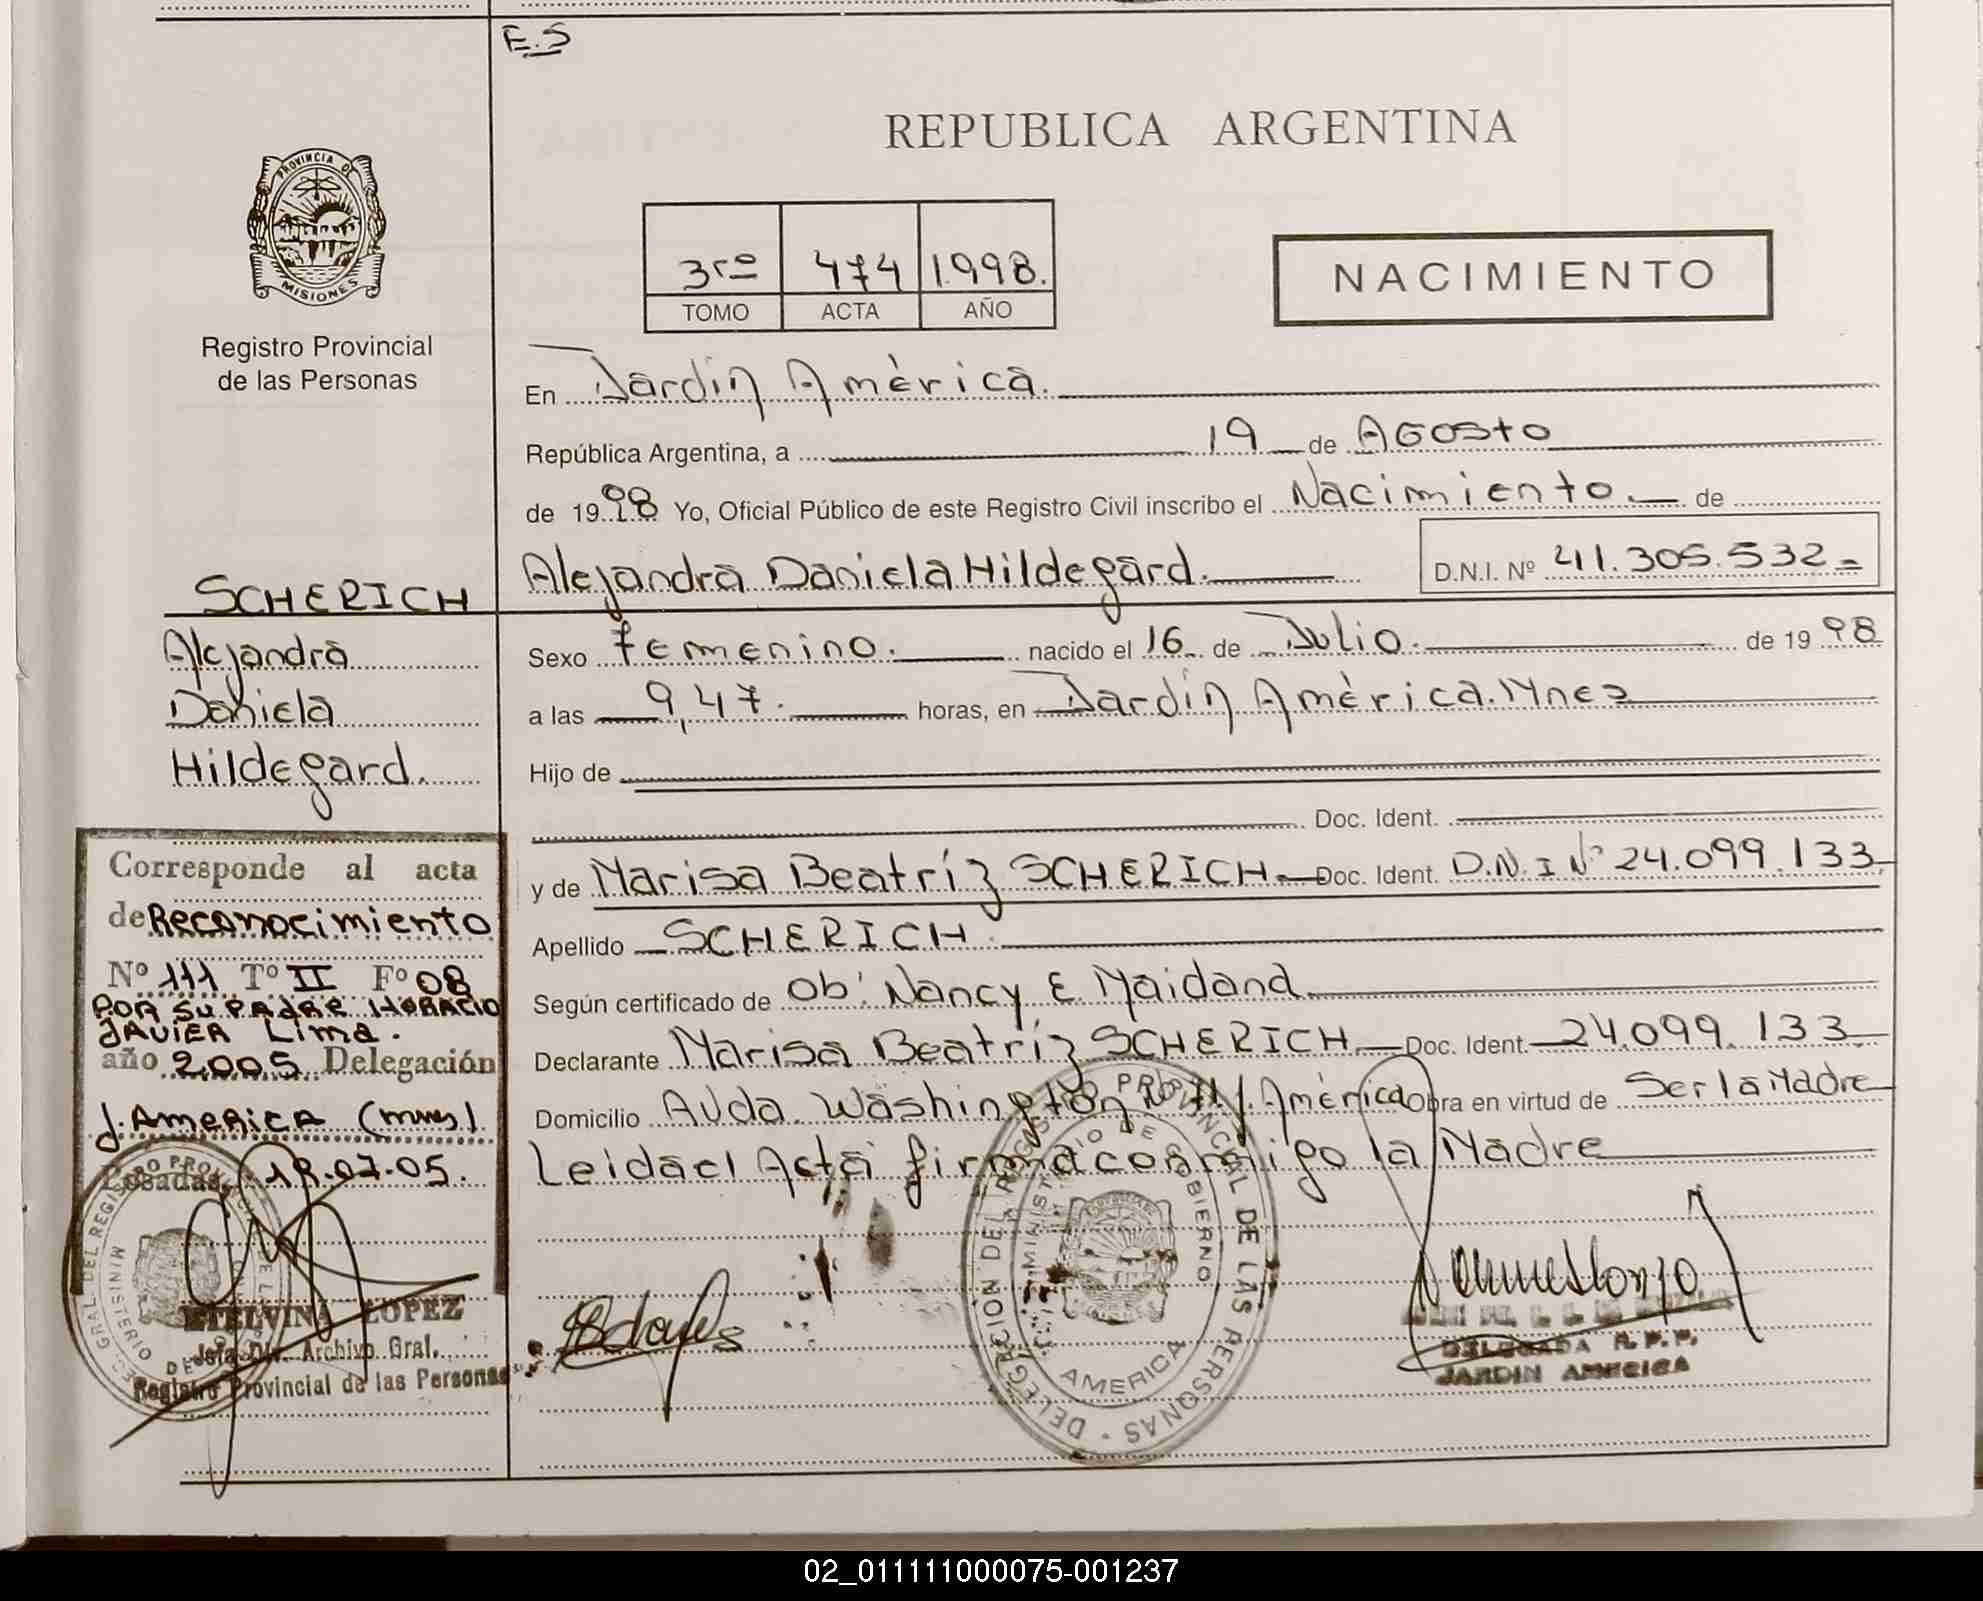 E.S
REPUBLICA ARGENTINA
PROVINCIA DE
MISIONES
3ro 474 1998.
TOMO ACTA AÑO
NACIMIENTO
Registro Provincial
de las Personas
En Jardín América.
República Argentina, a 19 de Agosto
de 1998 Yo, Oficial Público de este Registro Civil inscribo el Nacimiento. de
Alejandra Daniela Hildegard. D.N.I. Nº 41.305.532=
SCHERICH
Alejandra
Daniela
Hildegard.
Sexo femenino. nacido el 16 de Julio. de 1998
a las 9,47. horas, en Jardín América. Mnes
Hijo de
Doc. Ident.
y de Marisa Beatríz SCHERICH Doc. Ident. D.N.I Nº 24.099.133
Apellido SCHERICH.
Según certificado de ob. Nancy E Maidana
Declarante Marisa Beatríz SCHERICH Doc. Ident. 24.099.133
Domicilio Avda. Washington J. América Obra en virtud de Ser la Madre
Leida el Acta firma conmigo la Madre
Corresponde al acta
de Reconocimiento
Nº 111 Tº II Fº 08
POR SU PADRE HORACIO
JAVIER Lima.
año 2005 Delegación
J. America (mnes)
Posadas, 18.07.05.
ETELVINA LOPEZ
Jefa Dir. Archivo Gral.
Registro Provincial de las Personas
DELEGACION DEL REGISTRO PROVINCIAL DE LAS PERSONAS
MINISTERIO DE GOBIERNO
AMERICA
DELEGADA R.P.P.
JARDIN AMERICA
02_011111000075-001237